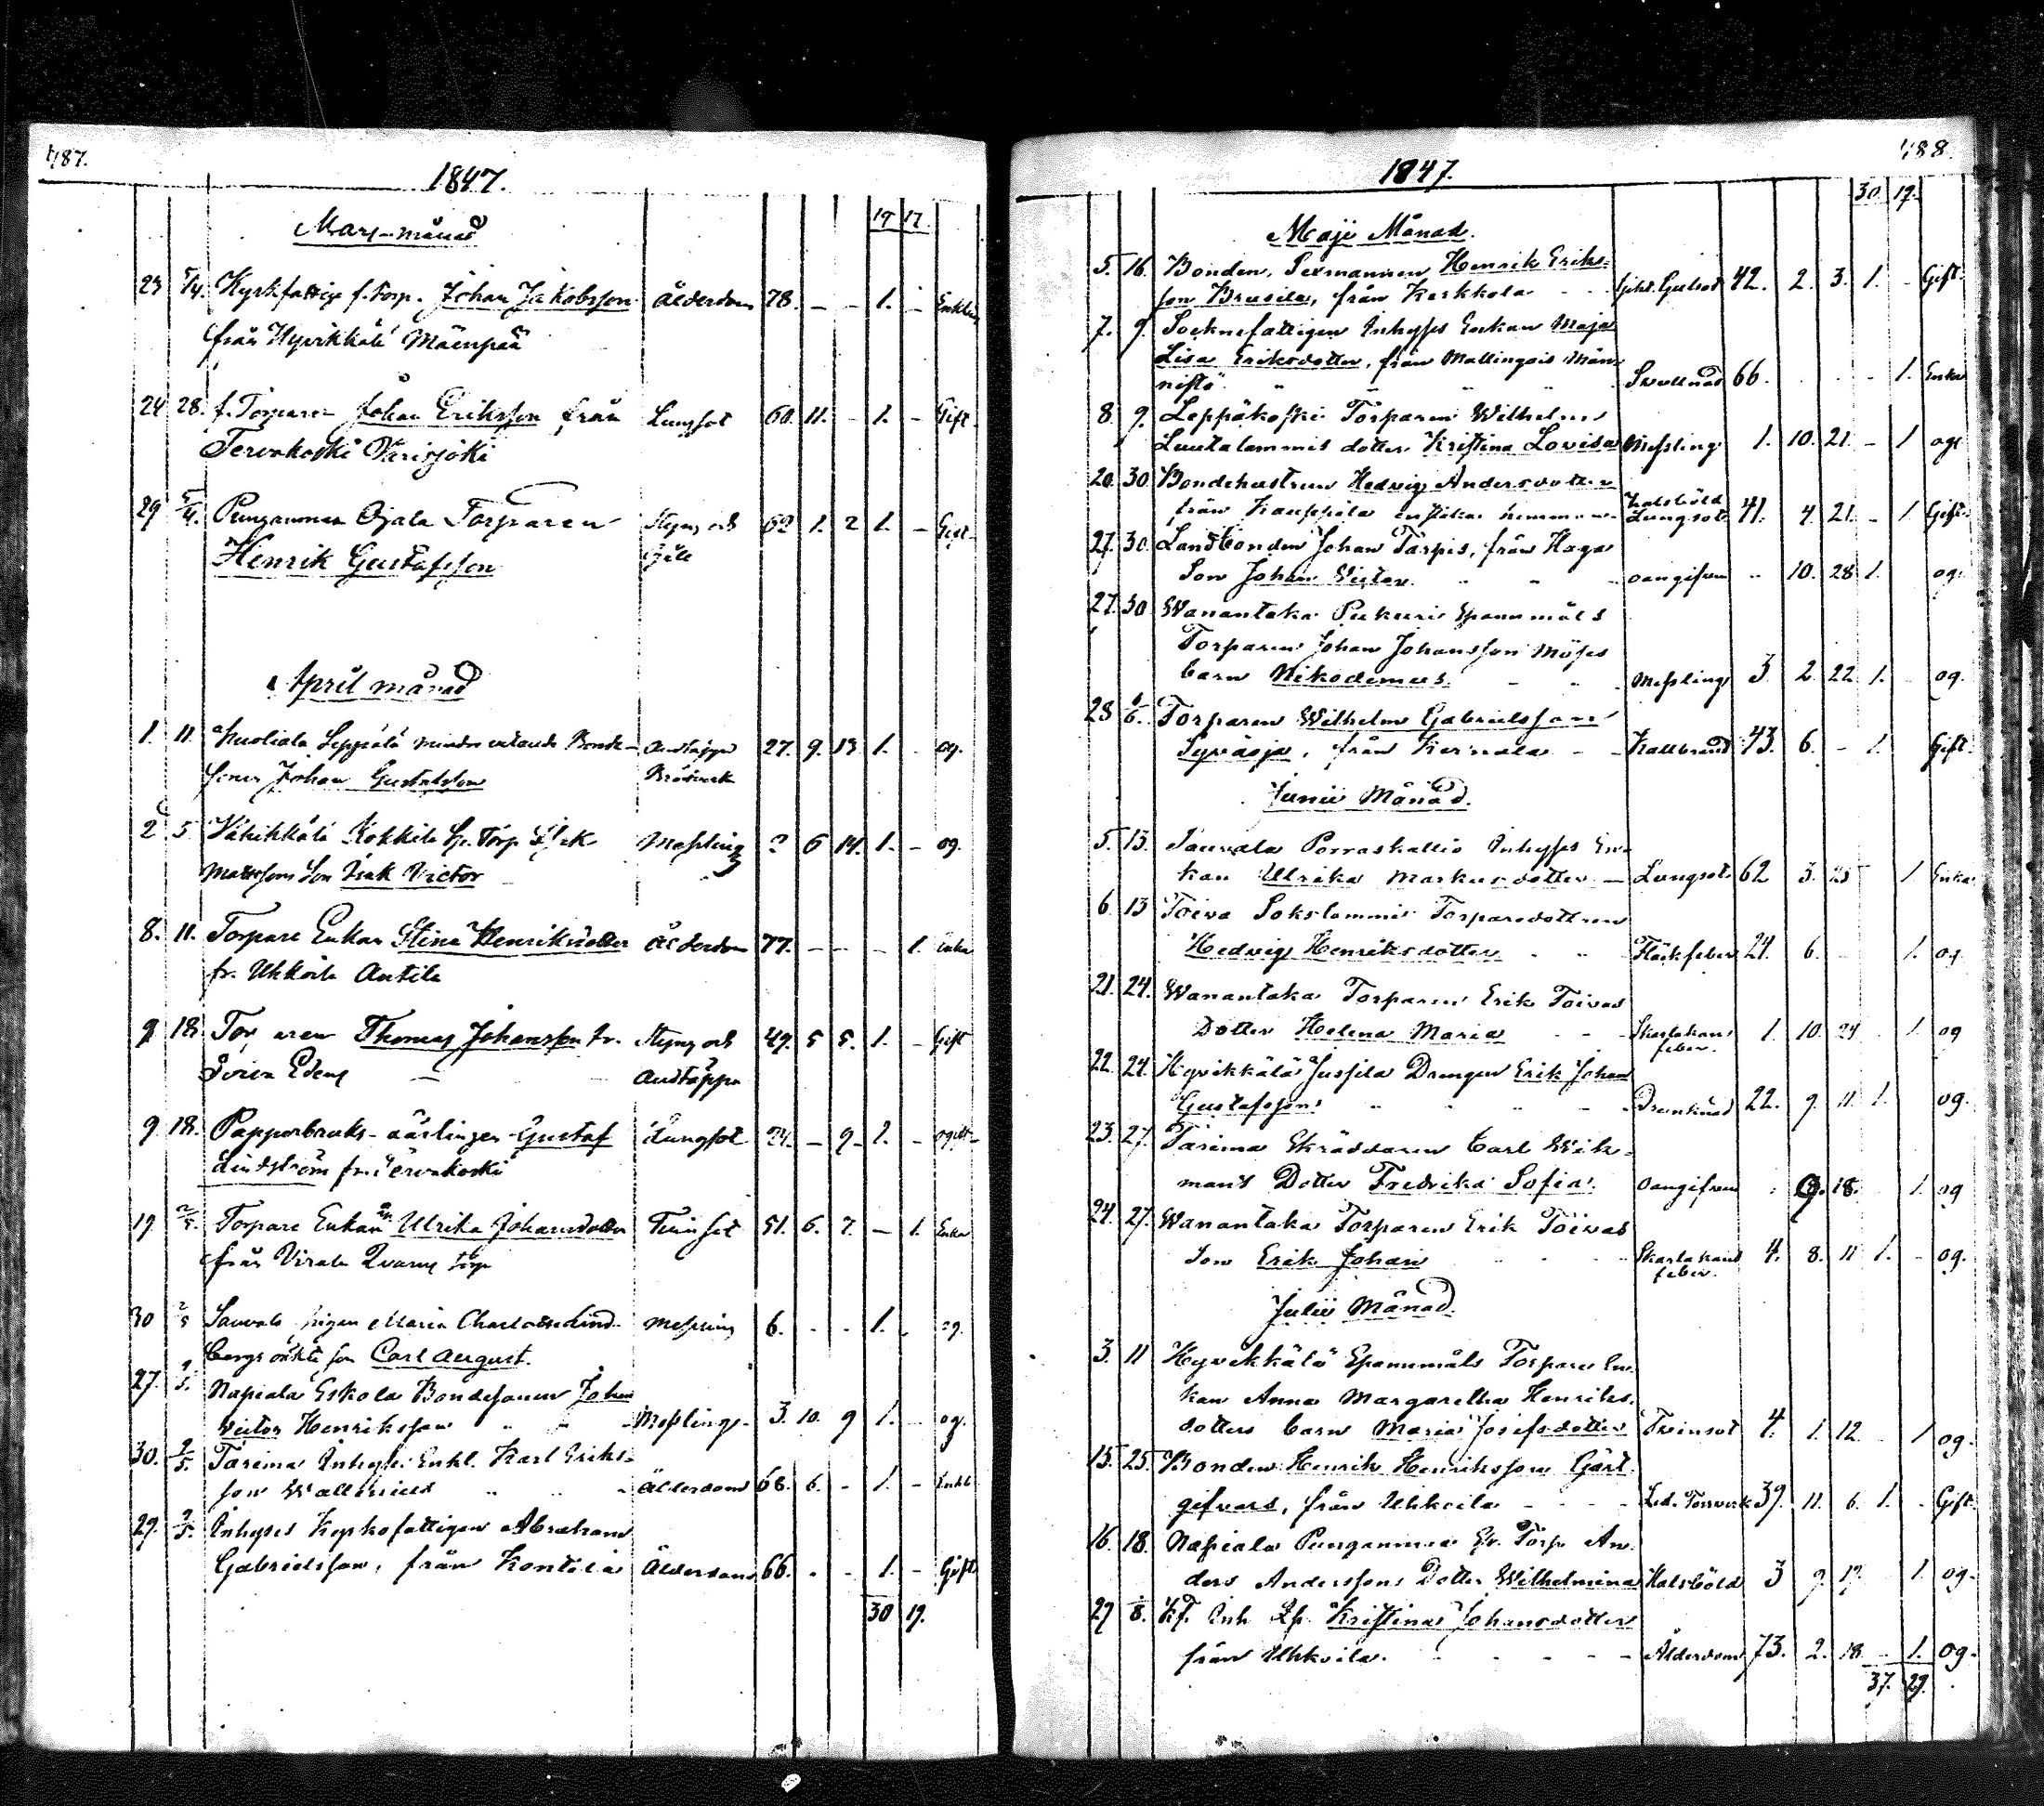 487.
1847.
19 17.
Mars månad
23 5/4 Kyrkfattige f. Torp. Johan Jakobsson Ålderdom 78. – – 1. – Enkling
från Hyvikkälä Mäenpää
24 28. f. Torparen Johan Eriksson från Lungsot 60. 11. – 1. – Gift
Tervakoski Varisjoki
29 5/4. Punganmaa Ojala Torparen Styng och 62 1. 2 1. – Gift
Henrik Gustafsson
April månad
1. 11. Leppälä Bonde- Andtäppa 27. 9. 13 1. – og.
Johan Gustafsson
2 5. Vähikkälä Kokkila Sp. Torp. Isak Messling 2 6 14. 1. – og.
Matssons Son Isak Victor
8. 11. Torpare Enkan Stina Henriksdotter Ålderdom 77. – – – 1. Enka
fr. Uhkoila Antila
9 18. Torparen Thomas Johansson fr. Styng och 49. 5 5. 1. – Gift
Andtäppa
9 18. Pappersbruks-lärlingen Gustaf Lungsot 24. – 9. 1. – ogift
Lindström fr. Tervakoski
19 2/5. Torpare Enkan Ulrika Johansdotter Tvinsot 51. 6. 7. – 1. Enka
från Virala Qvarns torp
30 2/5 Sauvala pigan Maria Charlotta Lind- Messling 6. – – 1. – og.
bergs oäkta son Carl August.
27. 2/5. Napiala Eskola Bondesonen Johan
Victor Henriksson – Messling 3. 10. 9 1. – og.
30. 2/5. Tarima Inhys. Enkl. Karl Eriks-
son Wallenius – Ålderdom 68. 6. – 1. – Enkl.
29. 2/5. Inhyses Kyrkofattigen Abraham
Gabrielsson, från Kontola Ålderdom 66. – – 1. – Gift
30 19.
488.
1847.
30. 19.
Maji Månad.
5. 16. Bonden, Sexmannen Henrik Eriks-
son Brusila, från Kerkkola 42. 2. 3. 1. – Gift.
7. 9. Socknefattigen Inhyses Enkan Maja
Lisa Eriksdotter, från Mallinkais Män-
nistö Svullnad 66. – 1. Enka
8 9. Leppäkoski Torparen Wilhelm
Luutalammis dotter Kristina Lovisa Messling 1. 10. 21. – 1 ogt
20. 30 Bondehustrun Hedvig Andersdotter
från Kauppila Halsböld Lungsot 41. 4. 21. – 1 Gift.
27. 30. Landbonden Johan Tarpis, från Haga
Son Johan Victor oangifven .. 10. 28 1. og.
27. 30 Wanantaka Pukuri Spannmåls
Torparen Johan Johansson
barn Nikodemus. Messling 3. 2. 22 1. og.
28 6/6. Torparen Wilhelm Gabrielsson
Syväoja, från Kernala – Kallbrand 43. 6. – 1. Gift.
Junii Månad.
5. 13. Sauvala Porraskallio Inhyses En-
kan Ulrika Markusdotter – Lungsot 62 3. 25 1. Enka
6. 13 Toiva Sokslammis Torparedottren
Hedvig Henriksdotter Fläckfeber 24. 6. 1. og.
21. 24. Wanantaka Torparen Erik Toivas
Dotter Helena Maria Skarlakans 1. 10. 24 1. og
feber.
22. 24. Hyvikkälä Jussila Drengen Erik Johan
Gustafsson Drunknad 22. 9. 11. 1. og.
23. 27. Tarima Skräddaren Carl Wik-
mans Dotter Fredrika Sofia. oangifven . 9. 18. 1. og
24. 27. Wanantaka Torparen Erik Toivas
Son Erik Johan Skarlakans 4. 8. 11 1. – og.
feber.
Julii Månad.
3. 11 Hyvikkälä Spannmåls Torpare En-
kan Anna Margaretha Henriks-
dotters barn Maria Josefsdotter Tvinsot 4. 1. 12 1 og.
15. 25. Bonden Henrik Henriksson Gäst-
gifvars, från Uhkoila 39. 11. 6. 1. Gift.
16. 18. Napiala Punganmaa Sp. Torp. An-
ders Anderssons Dotter Wilhelmina Halsböld 3 9. 17. 1. og.
29 1/8. Kf. Inh. Qp. Kristina Johansdotter
från Uhkoila. Ålderdom 73. 2. 18 1. og.
37. 29.